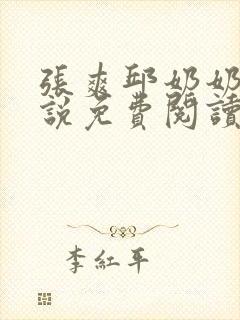 張爽邱奶奶
說免費閱讀
李紅平